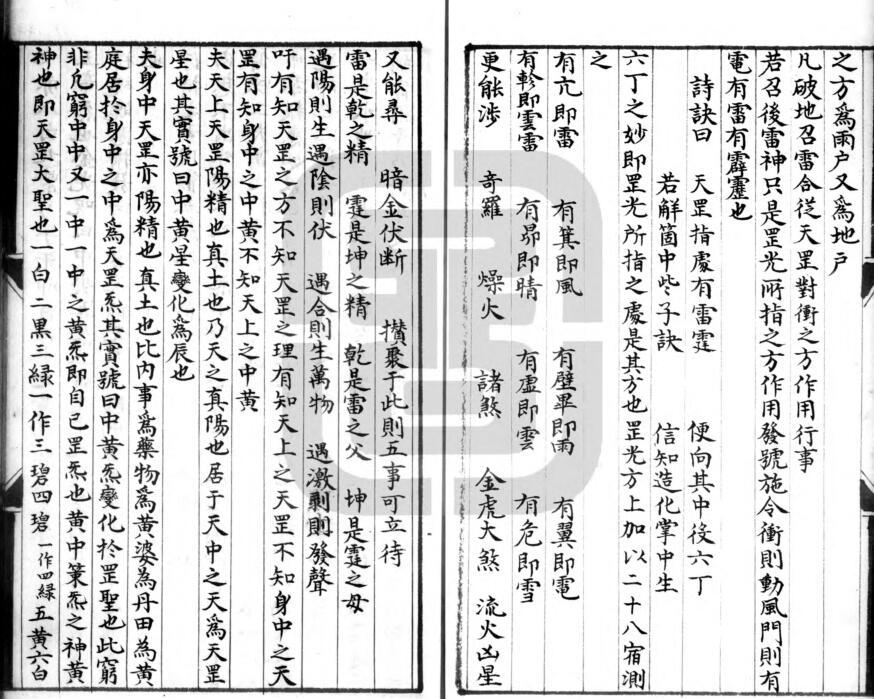 之方爲雨户又爲地户
凡破地召雷合從天罡對衝之方作用行事
若召後雷神只是罡光所指之方作用發號施令衝則動風門則有
電有雷有霹靂也
詩訣曰　天罡指處有雷霆　便向其中役六丁
若解箇中些子訣　信知造化掌中生
六丁之妙即罡光所指之處是其方也罡光方上加以二十八宿測
之
有亢即雷　有箕即風　有壁畢即雨　有翼即電
有軫即雲雷　有昴即晴　有虛即雲　有危即雪
更能渉　竒羅　燥火　諸煞　金虎大煞　流火凶星
又能尋　暗金伏断　攅聚于此則五事可立待
雷是乾之精　霆是坤之精　乾是雷之父　坤是霆之母
遇陽則生遇陰則伏　遇合則生萬物　遇激剝則發聲
吁有知天罡之方不知天罡之理有知天上之天罡不知身中之天
罡有知身中之中黄不知天上之中黄
夫天上天罡陽精也真土也乃天之真陽也居于天中之天爲天罡
星也其實號曰中黄星變化爲辰也
夫身中天罡亦陽精也真土也比内事爲藥物爲黄婆爲丹田為黄
庭居於身中之中爲天罡炁其實號曰中黄炁變化於罡聖也此窮
非凢窮中中又一中一中之黄炁即自己罡炁也黄中策炁之神黄
神也即天罡大聖也一白二黒三緑一作三碧四碧一作四緑五黄六白